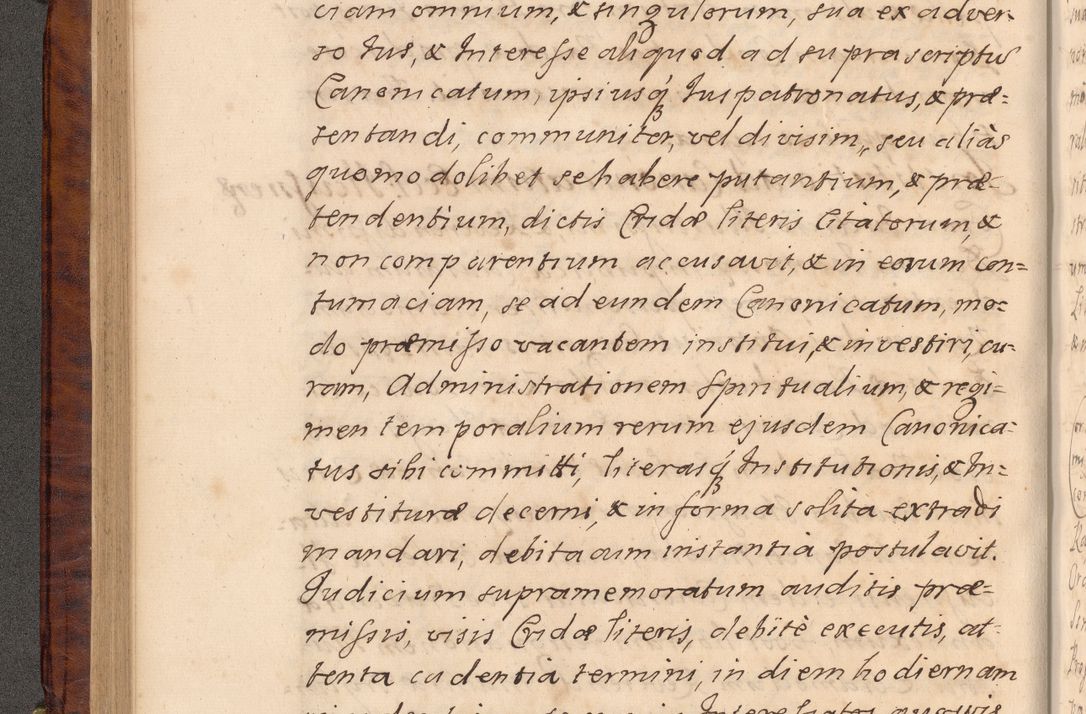 ciam omnium, & singulorum, sua ex adver-
so Jus, & Interesse aliquod ad suprascriptū
Canonicatum, ipsiusq́ Juspatronatus, & præ=
sentandi, communiter, vel divisim, seu aliàs
quomodolibet se habere putantium, & præ-
tendentium, dictis Cridæ literis Citatorum, &
non comparentium accusavit, & in eorum con=
tumaciam, se ad eundem Canonicatum, mo-
do præmisso vacantem institui, & investiri, cu-
ram, Administrationem Spiritualium, & regi=
men temporalium rerum ejusdem Canonica=
tus sibi committi, literasq́ Institutionis, & In=
vestituræ decerni, & in forma solita extradi
mandari, debita cum instantia postulavit.
Judicium supramemoratum auditis præ=
missis, visis Cridæ literis, debitè executis, at-
tenta cadentia termini, in diem hodiernam